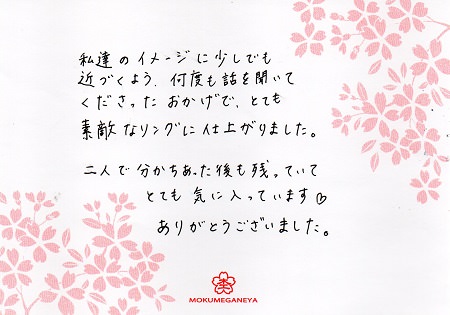 私達のイメージに少しでも
近づくよう、何度も話を聞いて
くださったおかげで、とても
素敵なリングに仕上がりました。
二人で分かちあった後も残っていて
とても気に入っています♡
ありがとうございました。
MOKUMEGANEYA